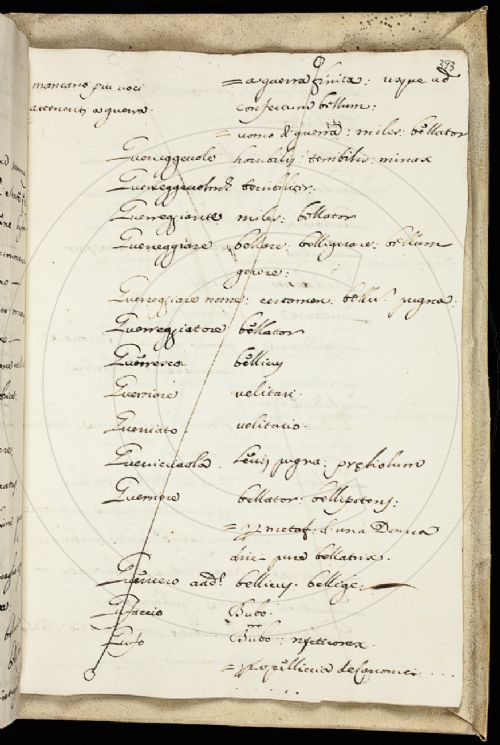 393
mancano più voci = a guerra finita: usque ad
attenenti a guerra. confectum bellum:
= uomo di guerra: miles: bellator
Guereggevole horribilis: terribilis: minax
Guereggevolmte terribiliter.
Guerreggiante miles: bellator
Guereggiare bellare: belligerare: bellum
gerere:
Guereggiare nome: certamen. bellu. pugna.
Guerreggiatore bellator
Guerresco bellicus
Guerriare velitari.
Guerriato: velitatio.
Guerricciuola. levis pugna: prȩliolum
Guerriere bellator: bellipotens:
= metaf. d'una Donna
dic. pure bellatrix.
Guerriero add. bellicus: belliger
Gufaccio Bubo:
Gufo Bubo: nycticorax.
= pelliccia de Canonici. ...